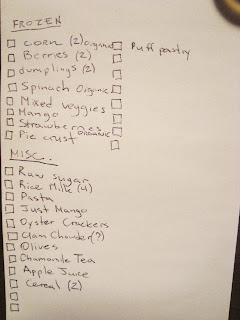 FROZEN
CORN (2) Organic
Berries (2)
dumplings (2)
Spinach Organic
Mixed veggies
Mango
Strawberries ORGANIC
Pie crust
Puff pastry
MISC.
Raw sugar
Rice Milk (4)
Pasta
Just Mango
Oyster Crackers
Clam Chowder (?)
Olives
Chamomile Tea
Apple Juice
Cereal (2)